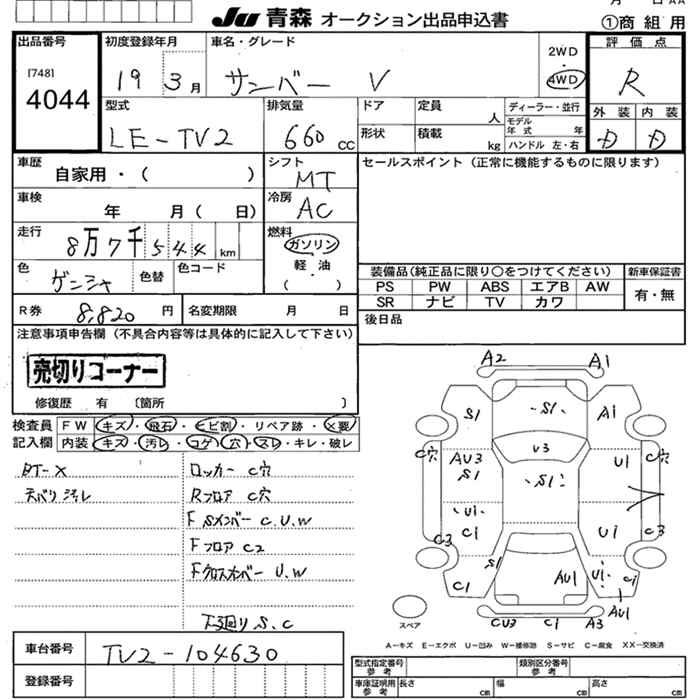 Ju 青森 オークション出品申込書
①商 組 用
出品番号
[748]
4044
初度登録年月
19 3月
車名・グレード
サンバー V
2WD
・
4WD
評価点
R
外装 内装
D D
型式
LE-TV2
排気量
660 CC
ドア
形状
定員 人
積載 kg
ディーラー・並行
モデル年式 年
ハンドル 左・右
車歴
自家用・( )
シフト
MT
セールスポイント(正常に機能するものに限ります)
車検
年 月( 日)
冷房
AC
走行
8万7千544km
燃料
ガソリン
軽・油
( )
色
ゲンシャ
色替
色コード
装備品(純正品に限り○をつけてください)
新車保証書
PS PW ABS エアB AW
SR ナビ TV カワ
有・無
R券 8,820円
名変期限 月 日
後日品
注意事項申告欄(不具合内容等は具体的に記入して下さい)
売切りコーナー
修復歴 有 〔箇所 〕
検査員記入欄
FW キズ・飛石・ヒビ割・リペア跡・×要
内装 キズ・汚レ・コゲ・穴・スレ・キレ・破レ
BT-X
天バリ汚レ
ロッカー C穴
Rフロア C穴
F Sメンバー C.U.W
Fフロア C2
Fクロスメンバー U.W
下廻り S.C
A2 A1
S1 S1 A1
C穴 AU3 S1 U3 U1 C穴
S1
U1
C3 C1 U1 C3
S1 C1 AU1 U1 C1
AU1
CU3 C1 A3
スペア
A-キズ E-エクボ U-凹み W-補修跡 S-サビ C-腐食 XX-交換済
車台番号
TV2-104630
登録番号
型式指定番号 参考
類別区分番号 参考
車庫証明用 参考
長さ cm
幅 cm
高さ cm